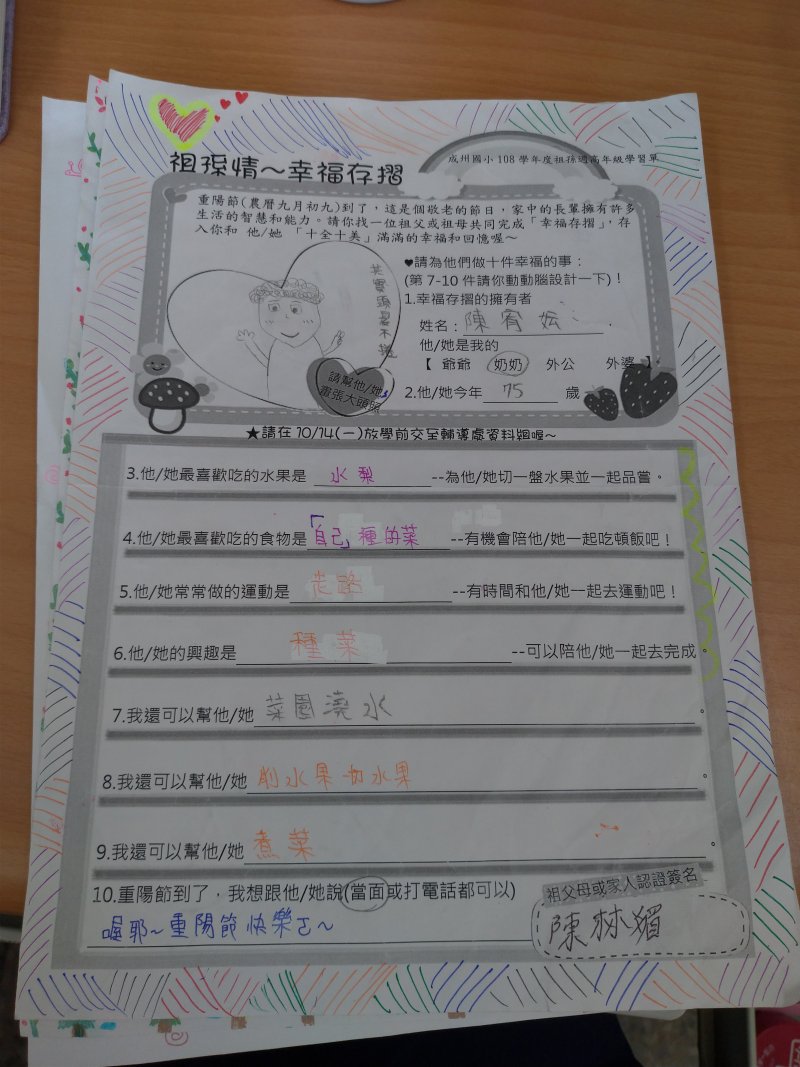 成州國小 108 學年度祖孫週高年級學習單
祖孫情～幸福存摺
重陽節(農曆九月初九)到了，這是個敬老的節日，家中的長輩擁有許多
生活的智慧和能力。請你找一位祖父或祖母共同完成「幸福存摺」，存
入你和 他/她 「十全十美」滿滿的幸福和回憶喔～
其實頭是不捲
請幫他/她
畫張大頭照
♥請為他們做十件幸福的事：
(第 7-10 件請你動動腦設計一下)！
1.幸福存摺的擁有者
姓名：陳宥妘
他/她是我的
【 爺爺 奶奶 外公 外婆 】
2.他/她今年 75 歲
★請在 10/14(一)放學前交至輔導處資料組喔～
3.他/她最喜歡吃的水果是 水梨 --為他/她切一盤水果並一起品嘗。
4.他/她最喜歡吃的食物是「自己」種的菜 --有機會陪他/她一起吃頓飯吧！
5.他/她常常做的運動是 走路 --有時間和他/她一起去運動吧！
6.他/她的興趣是 種菜 --可以陪他/她一起去完成。
7.我還可以幫他/她 菜園澆水。
8.我還可以幫他/她 削水果切水果。
9.我還可以幫他/她 煮菜。
10.重陽節到了，我想跟他/她說(當面或打電話都可以)
喔耶~重陽節快樂ㄛ~
祖父母或家人認證簽名
陳林嬪